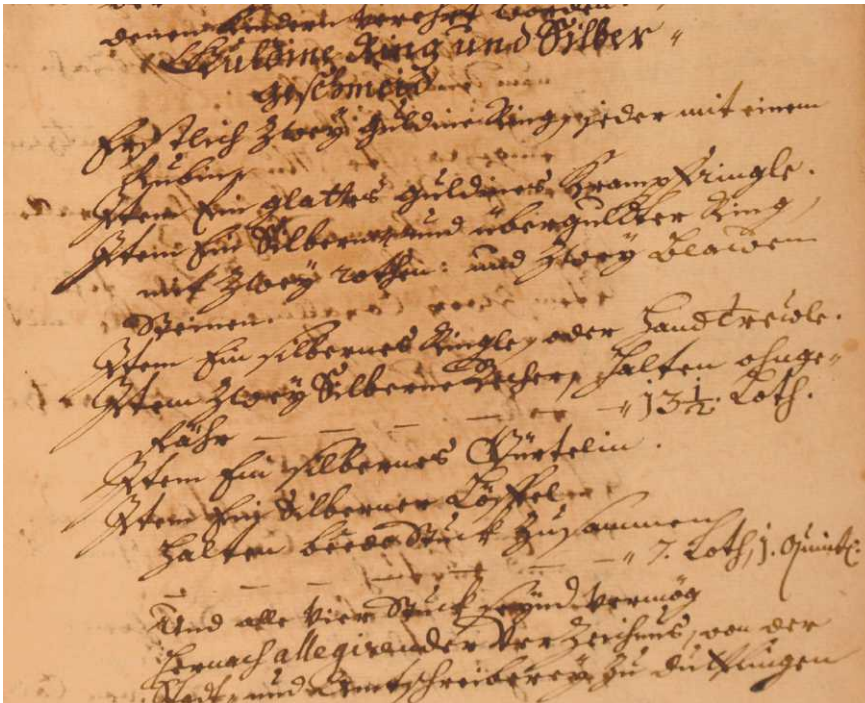 denen Kindern verehrt worden.
Guldine Ring und Silber
geschmeid
Erstlich Zwey guldine Ring, jeder mit einem
Rubin,
Item Ein glattes guldines Krampfringle.
Item Ein Silberner und übergulldter Ring,
mit Zwey rothen: und Zwey Blawen
Steinen.
Item Ein silbernes Ringle, oder Handtrewle.
Item Zwey Silberne Becher, halten ohnge-
fähr — — — — — " 13½. Loth.
Item Ein silbernes Gürtelin.
Item Ein Silberner Löffel
halten beede Stuck Zusammen
— — — — — — " 7. Loth, 1. Quintl:
Und alle Vier Stuck seynd vermög
hernach allegirender Verzeichnus, von der
Stadt- und Amtschreiberey zu Tuttlingen